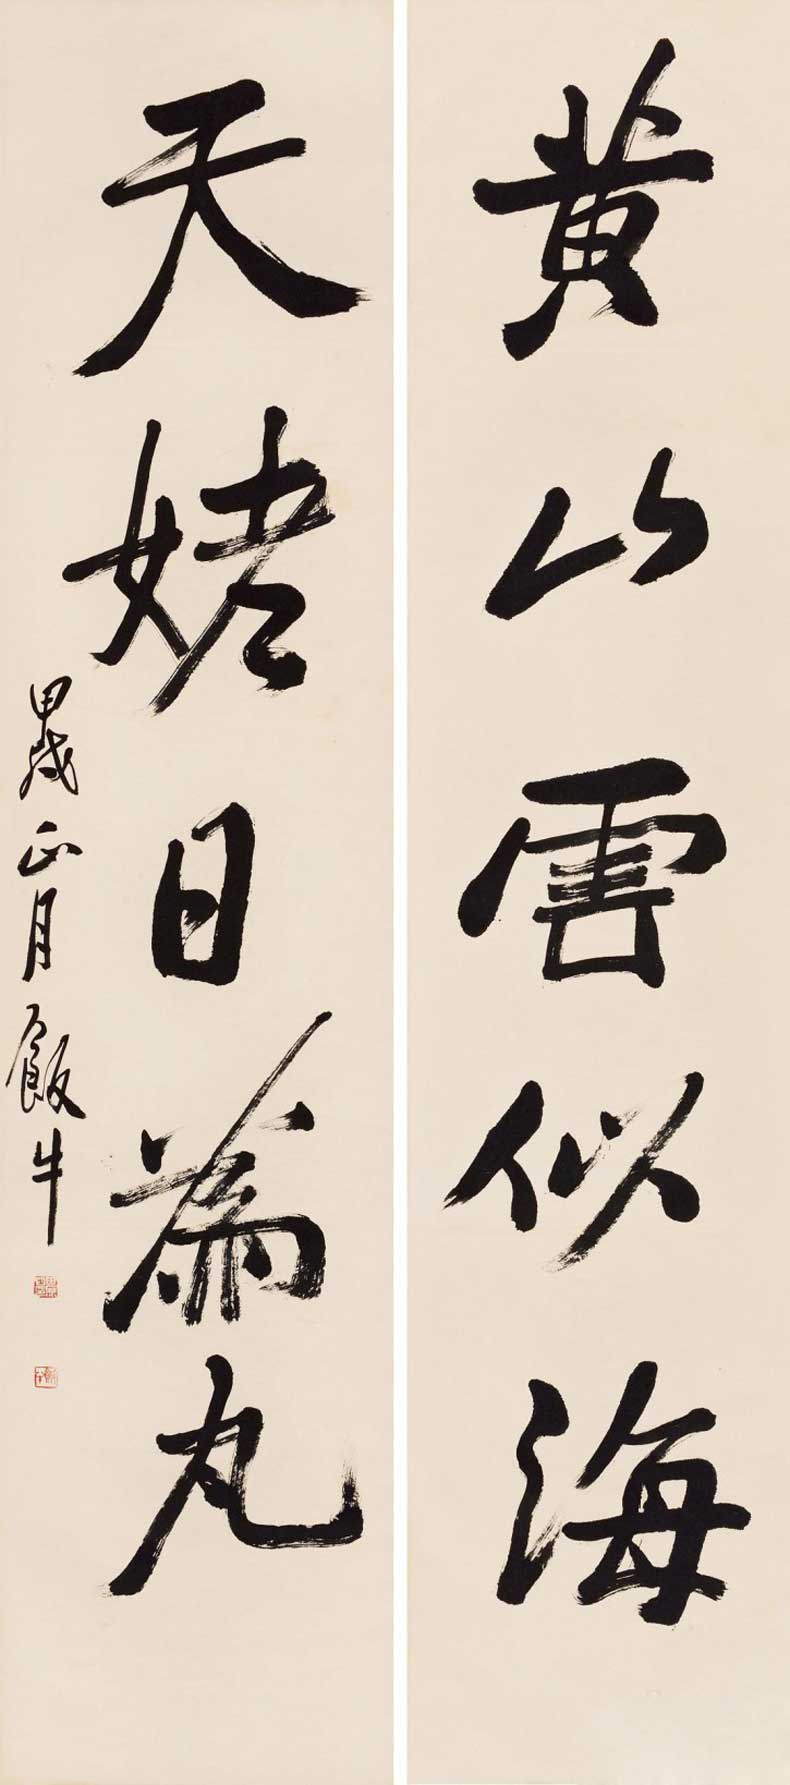 黄山雲似海
天姥日為丸
甲戌正月飯牛